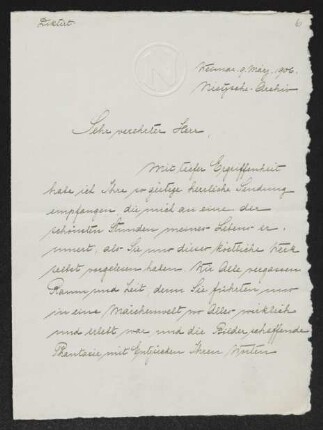 Diktat.
6
Weimar. 9. März. 1906.
Nietzsche-Archiv
Sehr verehrter Herr,
Mit tiefer Ergriffenheit
habe ich Ihre so gütige herrliche Sendung
empfangen, die mich an eine der
schönsten Stunden meines Lebens er-
innert, als Sie uns dieses köstliche Werk
selbst vorgelesen haben. Wir Alle vergassen
Raum und Zeit, denn Sie führten uns
in eine Märchenwelt wo Alles wirklich
und erlebt war und die Bilder schaffende
Phantasie mit Entzücken Ihren Worten